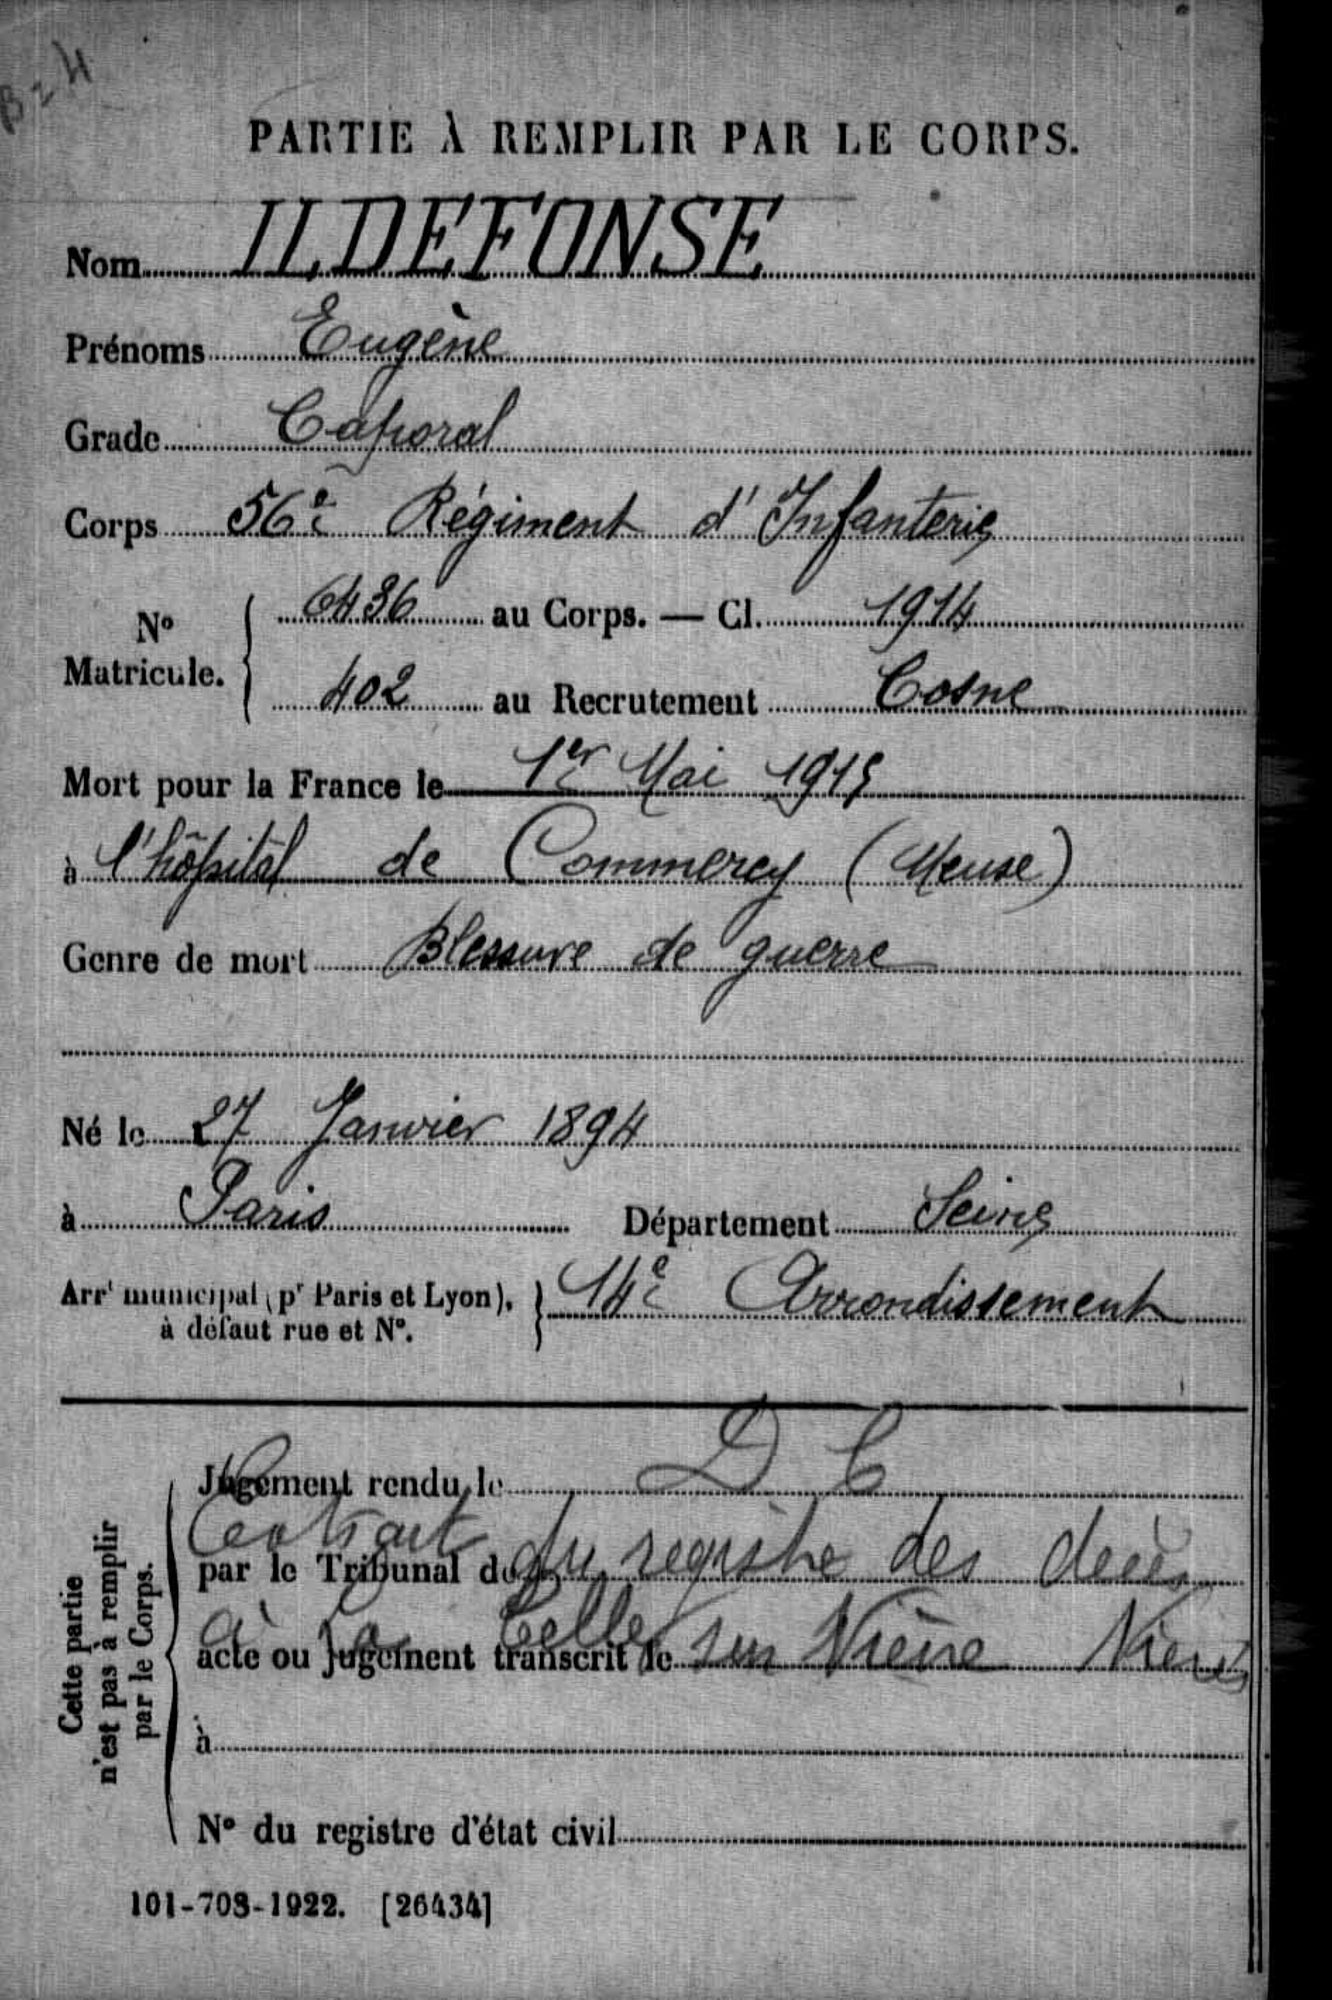 PARTIE À REMPLIR PAR LE CORPS.
Nom ILDEFONSE
Prénoms Eugène
Grade Caporal
Corps 56e Régiment d'Infanterie
No Matricule. { 6436 au Corps. — Cl. 1914
402 au Recrutement Cosne
Mort pour la France le 1er Mai 1915
à l'hôpital de Commercy (Meuse)
Genre de mort Blessure de guerre
Né le 27 Janvier 1894
à Paris Département Seine
Arrt municipal (pr Paris et Lyon), à défaut rue et No. } 14e Arrondissement
Cette partie n'est pas à remplir par le Corps.
Jugement rendu le D C
Extrait du registre des decès
par le Tribunal de
à La Celle sur Nièvre
acte ou jugement transcrit le
à
No du registre d'état civil
101-708-1922. [26434]